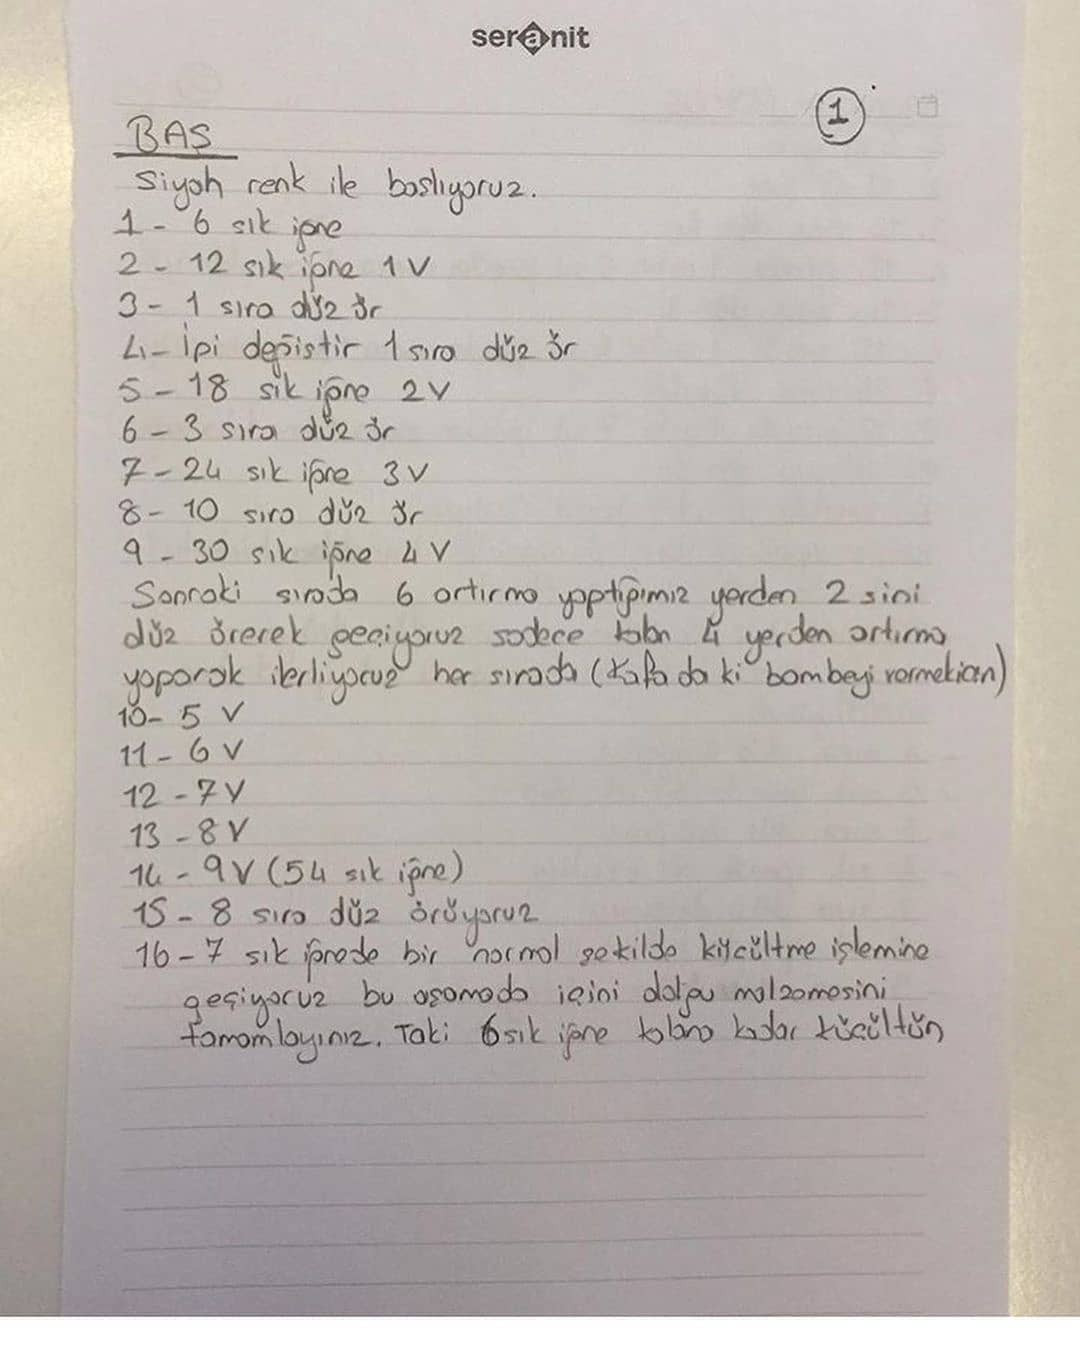 seranit
1
BAŞ
Siyah renk ile başlıyoruz.
1 - 6 sık iğne
2 - 12 sık iğne 1 V
3 - 1 sıra düz ör
4 - İpi değiştir 1 sıra düz ör
5 - 18 sık iğne 2 V
6 - 3 sıra düz ör
7 - 24 sık iğne 3 V
8 - 10 sıra düz ör
9 - 30 sık iğne 4 V
Sonraki sırada 6 artırma yaptığımız yerden 2 sini
düz örerek geçiyoruz sadece kalan 4 yerden artırma
yaparak ilerliyoruz her sırada (Kafa da ki bombeyi vermek için)
10 - 5 V
11 - 6 V
12 - 7 V
13 - 8 V
14 - 9 V (54 sık iğne)
15 - 8 sıra düz örüyoruz
16 - 7 sık iğnede bir normal şekilde küçültme işlemine
geçiyoruz bu aşamada içini dolgu malzemesini
tamamlayınız. Taki 6 sık iğne kalana kadar küçültün